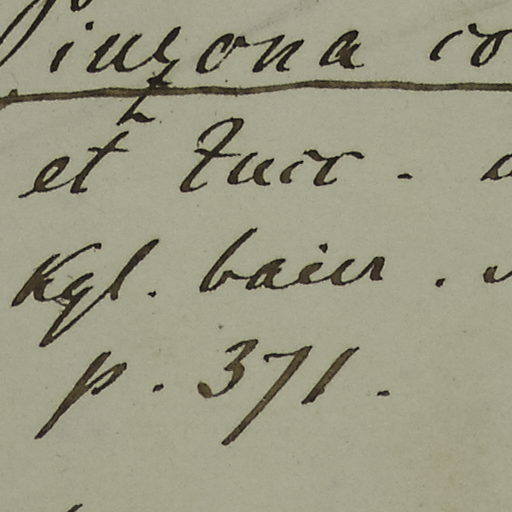 Pinzona co
et Zucc.
Kgl. baier.
p. 371.